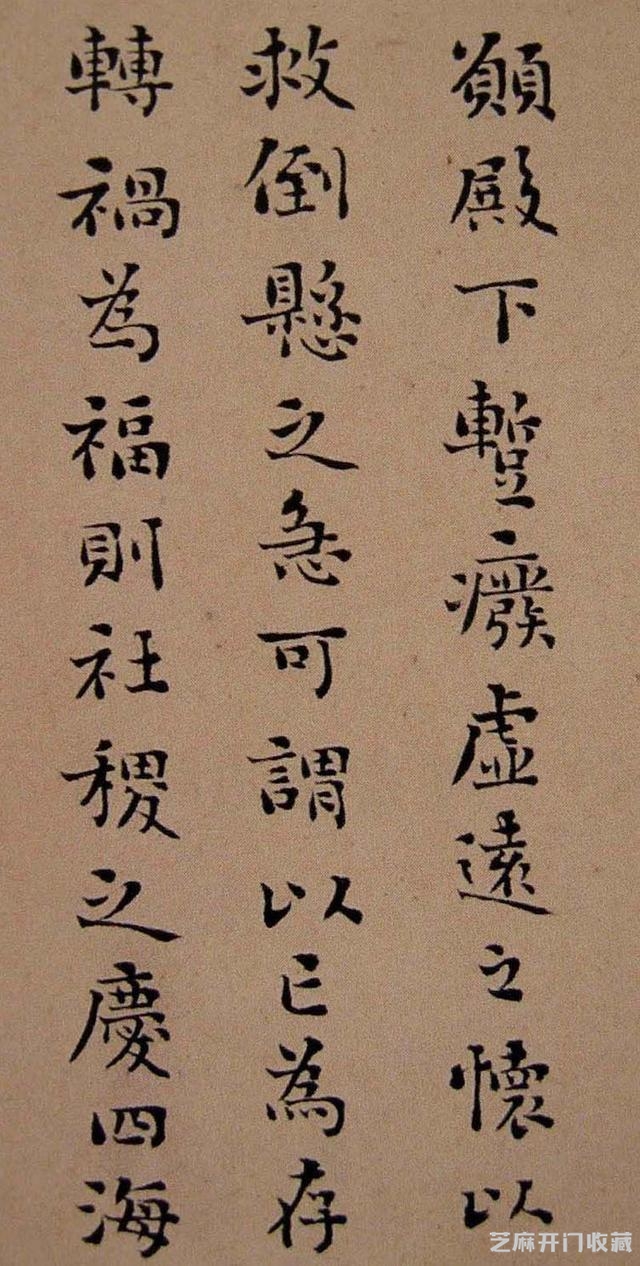 願殿下蹔癈虛遠之懷以
救倒懸之急可謂以亡為存
轉禍為福則社稷之慶四海
芝麻开门收藏